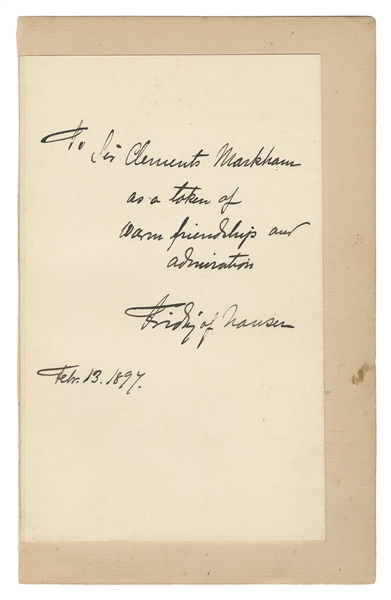 To Sir Clements Markham
as a token of
warm friendship and
admiration
Fridtjof Nansen
Febr. 13. 1897.